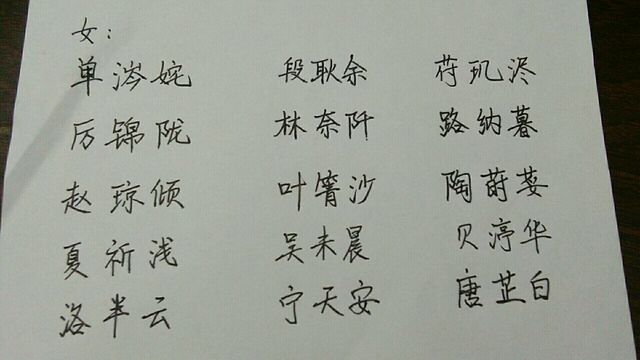 女：
单涔姹 段耿余 苻玑浕
厉锦陇 林奈阡 路纳暮
赵琼倾 叶箐沙 陶莳菨
夏祈浅 吴未晨 贝渟华
洛半云 宁天安 唐芷白